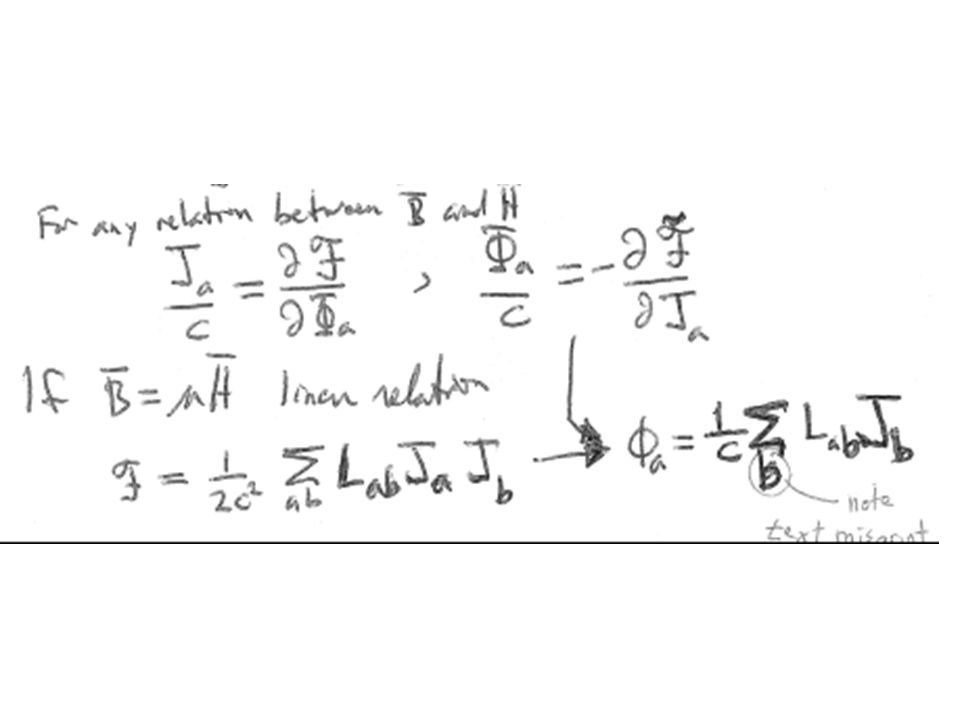 For any relation between B̅ and H̅
J_a/c = ∂ℱ/∂Φ_a , Φ_a/c = -∂ℱ̃/∂J_a
If B̅ = μH̅ linear relation
ℱ = 1/2c² Σ_ab L_ab J_a J_b → ϕ_a = 1/c Σ_b L_ab J_b
note
text misprint